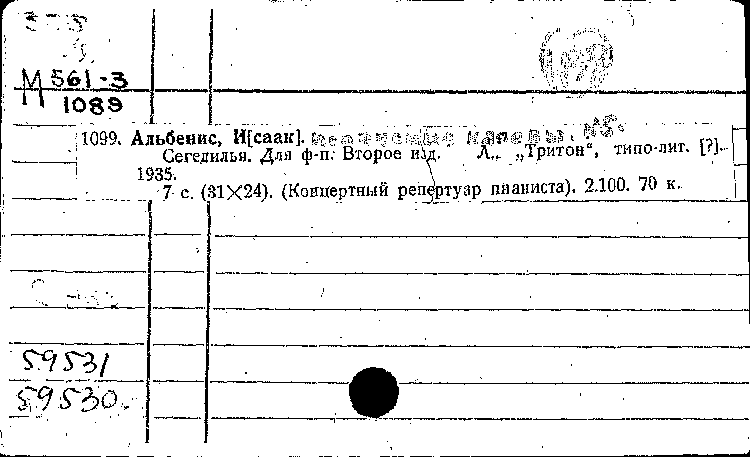 М 561-3
1089
1099. Альбенис, И[саак]. напевы. №5.
Сегедилья. Для ф-п. Второе изд. Л., „Тритон“, типо-лит. [?].
1935.
7 с. (31×24). (Концертный репертуар пианиста). 2.100. 70 к.
59531
59530.